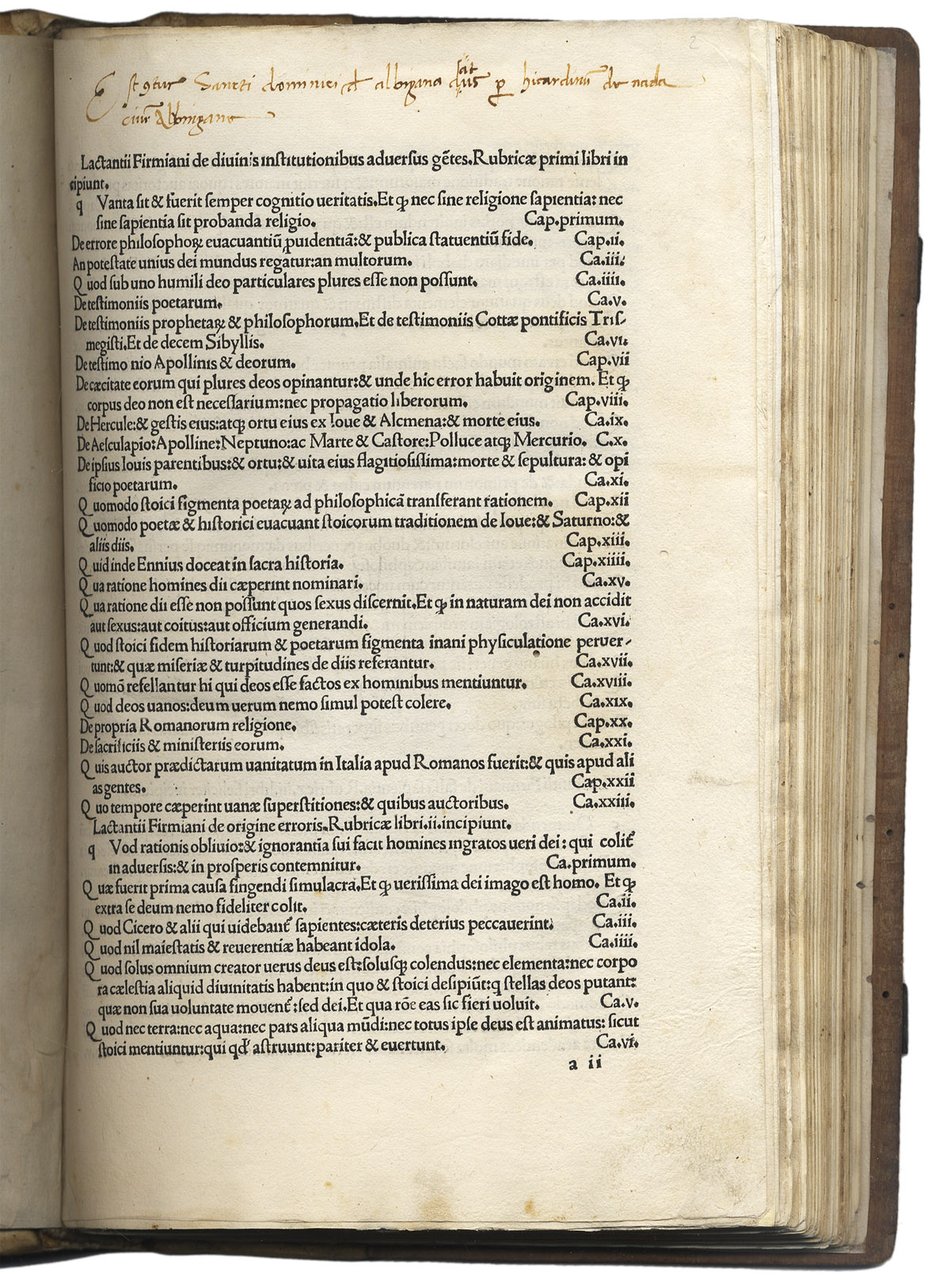 2
Est 9tus Sancti dominici d albigana
de nada
Lactantii Firmiani de diuinis institutionibus aduersus gẽtes.Rubricæ primi libri in
cipiunt.
q Vanta sit & fuerit semper cognitio ueritatis.Et ꝙ nec sine religione sapientia: nec
sine sapientia sit probanda religio. Cap.primum.
De errore philosophoꝝ euacuantiũ ꝓuidentiã:& publica statuentiũ fide. Cap.ii.
An potestate unius dei mundus regatur:an multorum. Ca.iii.
Q uod sub uno humili deo particulares plures esse non possunt. Ca.iiii.
De testimoniis poetarum. Ca.v.
De testimoniis prophetaꝝ & philosophorum.Et de testimoniis Cottæ pontificis Tris-
megisti.Et de decem Sibyllis. Ca.vi.
De testimo nio Apollinis & deorum. Cap.vii
De cæcitate eorum qui plures deos opinantur:& unde hic error habuit originem. Et ꝙ
corpus deo non est necessarium:nec propagatio liberorum. Cap.viii.
De Hercule:& gestis eius:atqꝫ ortu eius ex Ioue & Alcmena:& morte eius. Ca.ix.
De Aesculapio:Apolline:Neptuno:ac Marte & Castore:Polluce atqꝫ Mercurio. C.x.
De ipsius Iouis parentibus:& ortu:& uita eius flagitiosissima:morte & sepultura: & opi
ficio poetarum. Ca.xi.
Q uomodo stoici figmenta poetaꝝ ad philosophicã transferant rationem. Cap.xii
Q uomodo poetæ & historici euacuant stoicorum traditionem de Ioue:& Saturno:&
aliis diis. Cap.xiii.
Q uid inde Ennius doceat in sacra historia. Cap.xiiii.
Q ua ratione homines dii cæperint nominari. Ca.xv.
Q ua ratione dii esse non possunt quos sexus discernit.Et ꝙ in naturam dei non accidit
aut sexus:aut coitus:aut officium generandi. Ca.xvi.
Q uod stoici fidem historiarum & poetarum figmenta inani physiculatione peruer-
tunt:& quæ miseriæ & turpitudines de diis referantur. Ca.xvii.
Q uomõ refellantur hi qui deos esse factos ex hominibus mentiuntur. Ca.xviii.
Q uod deos uanos:deum uerum nemo simul potest colere. Ca.xix.
De propria Romanorum religione. Cap.xx.
De sacrificiis & ministeriis eorum. Ca.xxi.
Q uis auctor prædictarum uanitatum in Italia apud Romanos fuerit:& quis apud ali
as gentes. Cap.xxii
Q uo tempore cæperint uanæ superstitiones:& quibus auctoribus. Ca.xxiii.
Lactantii Firmiani de origine erroris.Rubricæ libri.ii.incipiunt.
q Vod rationis obliuio:& ignorantia sui facit homines ingratos ueri dei: qui colit᷑
in aduersis:& in prosperis contemnitur. Ca.primum.
Q uæ fuerit prima causa fingendi simulacra.Et ꝙ uerissima dei imago est homo. Et ꝙ
extra se deum nemo fideliter colit. Ca.ii.
Q uod Cicero & alii qui uidebant᷑ sapientes:cæteris deterius peccauerint. Ca.iii.
Q uod nil maiestatis & reuerentiæ habeant idola. Ca.iiii.
Q uod solus omnium creator uerus deus est:solusqꝫ colendus:nec elementa:nec corpo
ra cælestia aliquid diuinitatis habent:in quo & stoici desipiũt:q stellas deos putant:
quæ non sua uoluntate mouent᷑:sed dei.Et qua rõe eas sic fieri uoluit. Ca.v.
Q uod nec terra:nec aqua:nec pars aliqua mũdi:nec totus ipse deus est animatus: sicut
stoici mentiuntur:qui qđ astruunt:pariter & euertunt. Ca.vi.
a ii